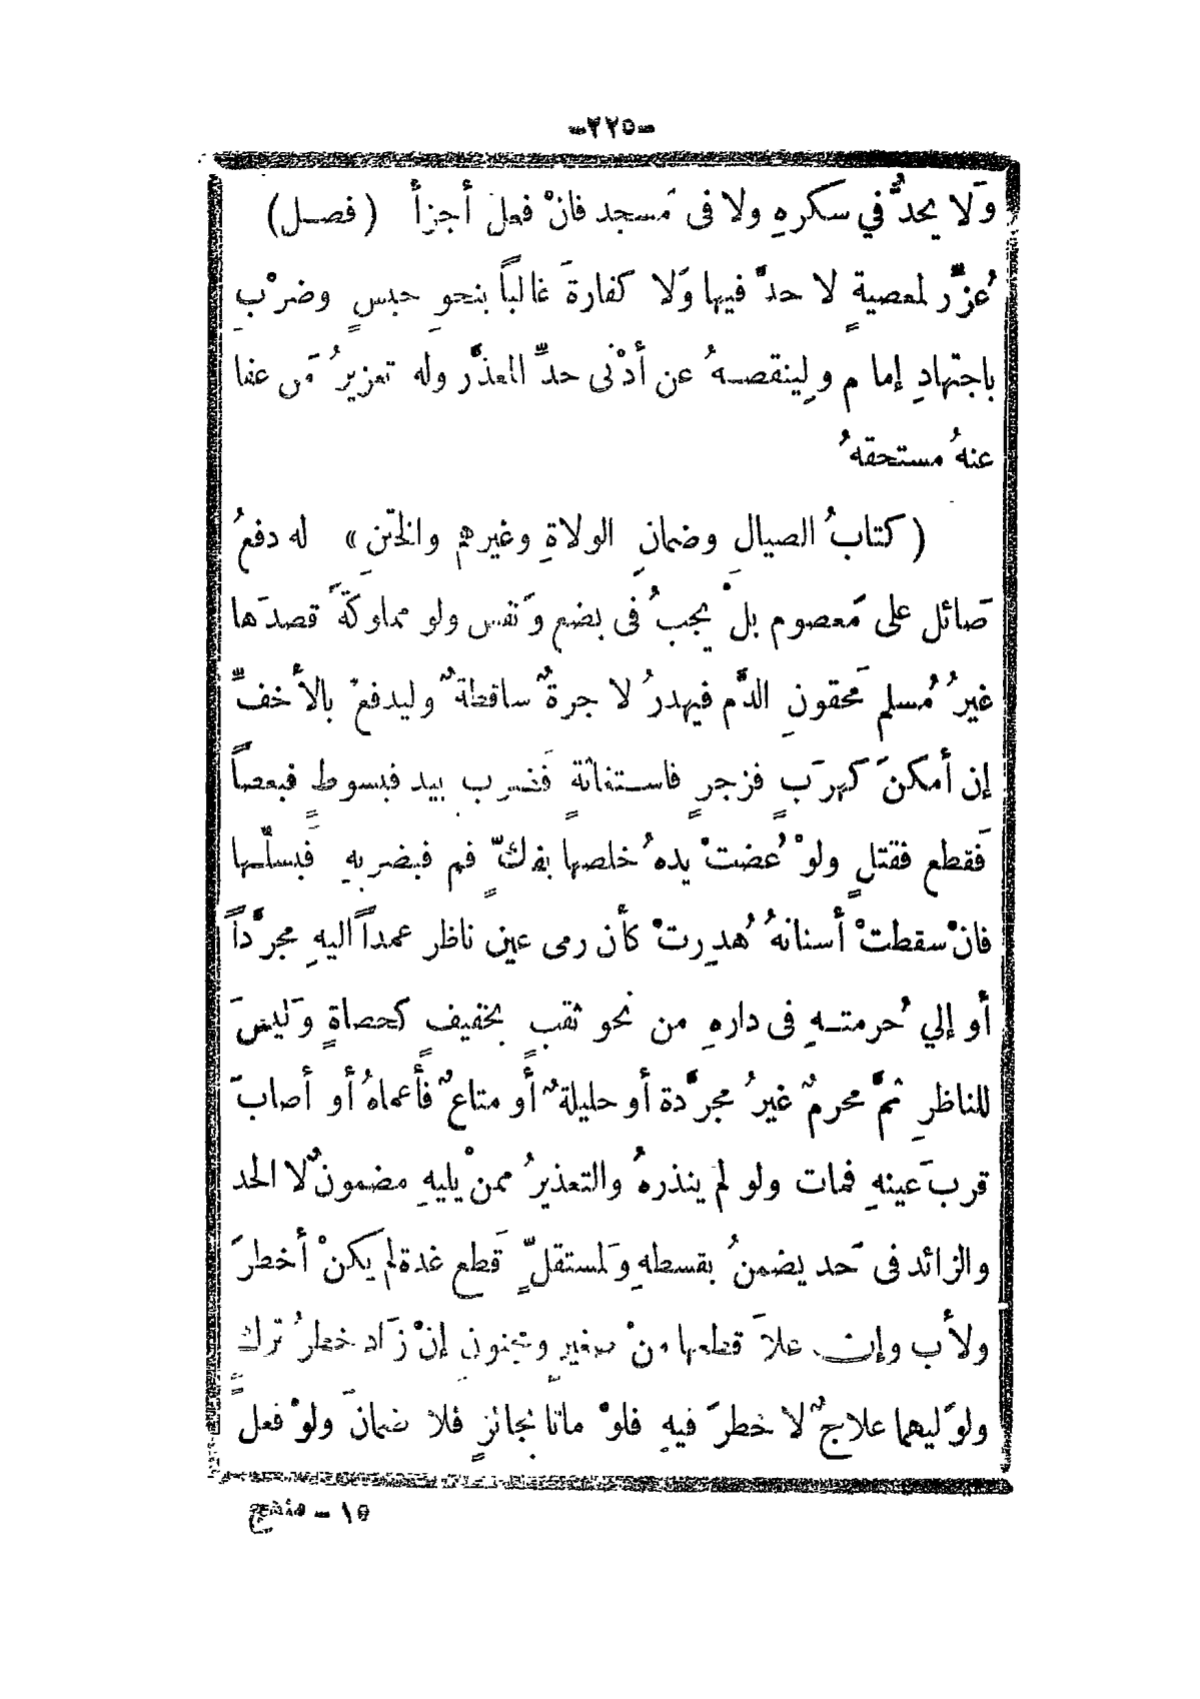 -٢٢٥-
وَلا يحدُّ في سكرهِ ولا فى مَسجد فانْ فعلَ أجزأ (فصل)
عُزِّر لمعصيةٍ لا حدَّ فيها وَلا كفارةَ غالباً بنحوِ حبسٍ وضرْبِ
باجتهادِ إمام ولِينقصهُ عن أدْنى حدِّ المعذَّر وله تعزيرُ مَن عفا
عنهُ مستحقهُ
(كتابُ الصيالِ وضمانِ الولاةِ وغيرهم والختنِ» له دفعُ
صَائل على مَعصوم بلْ يجبُ فى بضع وَنفس ولو مملوكةً قصدَها
غيرُ مُسلم مَحقونِ الدَّم فيهدرُ لا جرةٌ ساقطةٌ وليدفعْ بالأخفِّ
إن أمكنَ كهرَبٍ فزجرٍ فاستغاثةٍ فَضرب بيد فبسوطٍ فبعصاً
فَقطع فقتلٍ ولوْ عُضتْ يدهُ خلصها بفكّ فم فبضربهِ فَبسلّها
فانْ سقطتْ أسنانهُ هُدِرتْ كأن رمى عين ناظر عمداً اليهِ مجرَّداً
أو إلي حُرمتهِ فى دارهِ من نحو ثقبٍ بخفيفٍ كحصاةٍ وَليسَ
للناظرِ ثَمَّ محرمٌ غيرُ مجرَّدة أو حليلةٌ أو متاعٌ فأعماهُ أو أصابَ
قربَ عينهِ فمات ولو لم ينذرهُ والتعذيرُ ممنْ يليهِ مضمونٌ لا الحد
والزائد فى حَد يضمنُ بقسطهِ وَلمستقلٍّ قَطع غدة لم يكنْ أخطرَ
ولأب وإن علاَ قطعها منْ صغيرٍ ومجنونٍ إنْ زَاد خطرُ تركٍ
ولوَليهما علاجٌ لا خطرَ فيهِ فلوْ ماتا بجائزٍ فلا ضمانَ ولوْ فعلَ
١٥ - منهج